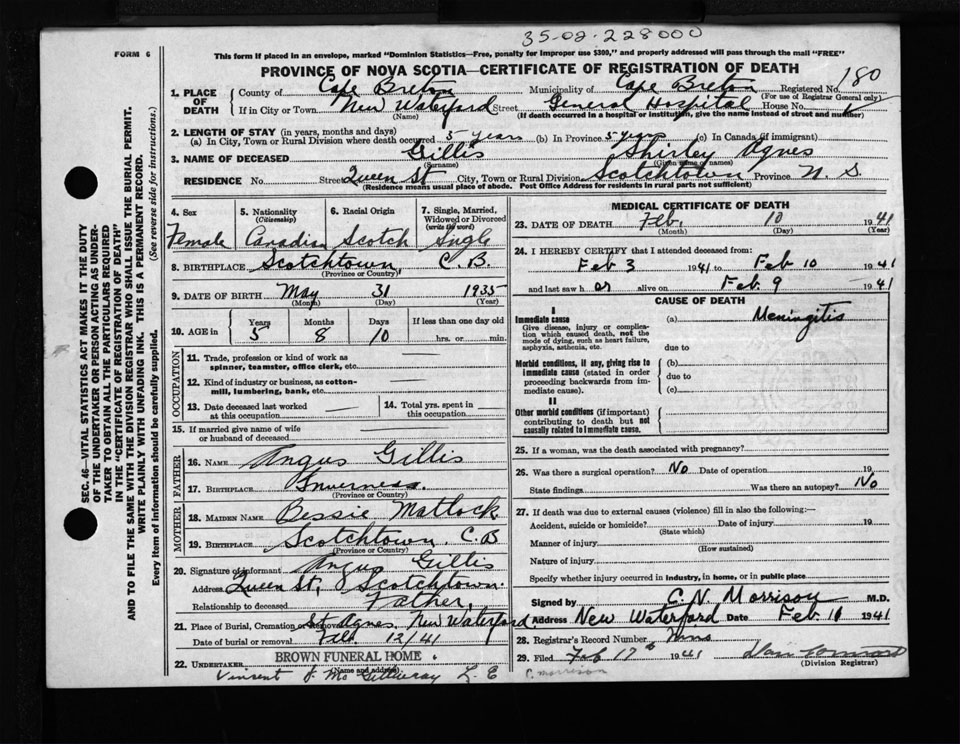 35-02-228000
FORM 6
This form if placed in an envelope, marked "Dominion Statistics—Free, penalty for improper use $300," and properly addressed will pass through the mail "FREE"
PROVINCE OF NOVA SCOTIA—CERTIFICATE OF REGISTRATION OF DEATH
SEC. 46—VITAL STATISTICS ACT MAKES IT THE DUTY
OF THE UNDERTAKER OR PERSON ACTING AS UNDER-
TAKER TO OBTAIN ALL THE PARTICULARS REQUIRED
IN THE "CERTIFICATE OF REGISTRATION OF DEATH"
AND TO FILE THE SAME WITH THE DIVISION REGISTRAR WHO SHALL ISSUE THE BURIAL PERMIT.
WRITE PLAINLY WITH UNFADING INK. THIS IS A PERMANENT RECORD.
Every item of information should be carefully supplied. (See reverse side for instructions.)
1. PLACE OF DEATH
County of Cape Breton Municipality of Cape Breton Registered No. 180
(For use of Registrar General only)
If in City or Town New Waterford Street General Hospital House No.
(Name) (If death occurred in a hospital or institution, give the name instead of street and number)
2. LENGTH OF STAY (in years, months and days)
(a) In City, Town or Rural Division where death occurred 5 years (b) In Province 5 years (c) In Canada (if immigrant)
3. NAME OF DECEASED Gillis Shirley Agnes
(Surname) (Given name or names)
RESIDENCE No. Street Queen St City, Town or Rural Division Scotchtown Province N. S.
(Residence means usual place of abode. Post Office Address for residents in rural parts not sufficient)
4. Sex Female
5. Nationality (Citizenship) Canadian
6. Racial Origin Scotch
7. Single, Married, Widowed or Divorced (write the word) Single
8. BIRTHPLACE Scotchtown, C.B.
(Province or Country)
9. DATE OF BIRTH May 31 1935
(Month) (Day) (Year)
10. AGE in Years Months Days If less than one day old
5 8 10 hrs. or min.
OCCUPATION
11. Trade, profession or kind of work as spinner, teamster, office clerk, etc. —
12. Kind of industry or business, as cotton-mill, lumbering, bank, etc. —
13. Date deceased last worked at this occupation —
14. Total yrs. spent in this occupation —
15. If married give name of wife or husband of deceased —
FATHER
16. NAME Angus Gillis
17. BIRTHPLACE Inverness.
(Province or Country)
MOTHER
18. MAIDEN NAME Bessie Matlock
19. BIRTHPLACE Scotchtown, C.B
(Province or Country)
20. Signature of informant Angus Gillis
Address Queen St, Scotchtown.
Relationship to deceased Father,
21. Place of Burial, Cremation or Removal St Agnes, New Waterford
Date of burial or removal Feb. 12/41
22. UNDERTAKER BROWN FUNERAL HOME
(Name and address)
Vinsent J. McGillivray L. E
MEDICAL CERTIFICATE OF DEATH
23. DATE OF DEATH Feb, 10 1941
(Month) (Day) (Year)
24. I HEREBY CERTIFY that I attended deceased from:
Feb 3 1941 to Feb 10 1941
and last saw h er alive on Feb 9 1941
CAUSE OF DEATH
I
Immediate cause (a) Meningitis
Give disease, injury or complication which caused death, not the mode of dying, such as heart failure, asphyxia, asthenia, etc.
due to
Morbid conditions, if any, giving rise to immediate cause (stated in order proceeding backwards from immediate cause).
(b)
due to
(c)
II
Other morbid conditions (if important) contributing to death but not causally related to immediate cause.
25. If a woman, was the death associated with pregnancy?
26. Was there a surgical operation? No Date of operation 19
State findings Was there an autopsy? No
27. If death was due to external causes (violence) fill in also the following:—
Accident, suicide or homicide? Date of injury 19
(State which)
Manner of injury
(How sustained)
Nature of injury
Specify whether injury occurred in industry, in home, or in public place
Signed by C. N. Morrison M.D.
Address New Waterford Date Feb. 10 1941
28. Registrar's Record Number
29. Filed Feb 17th 1941
(Division Registrar)
C. Morrison